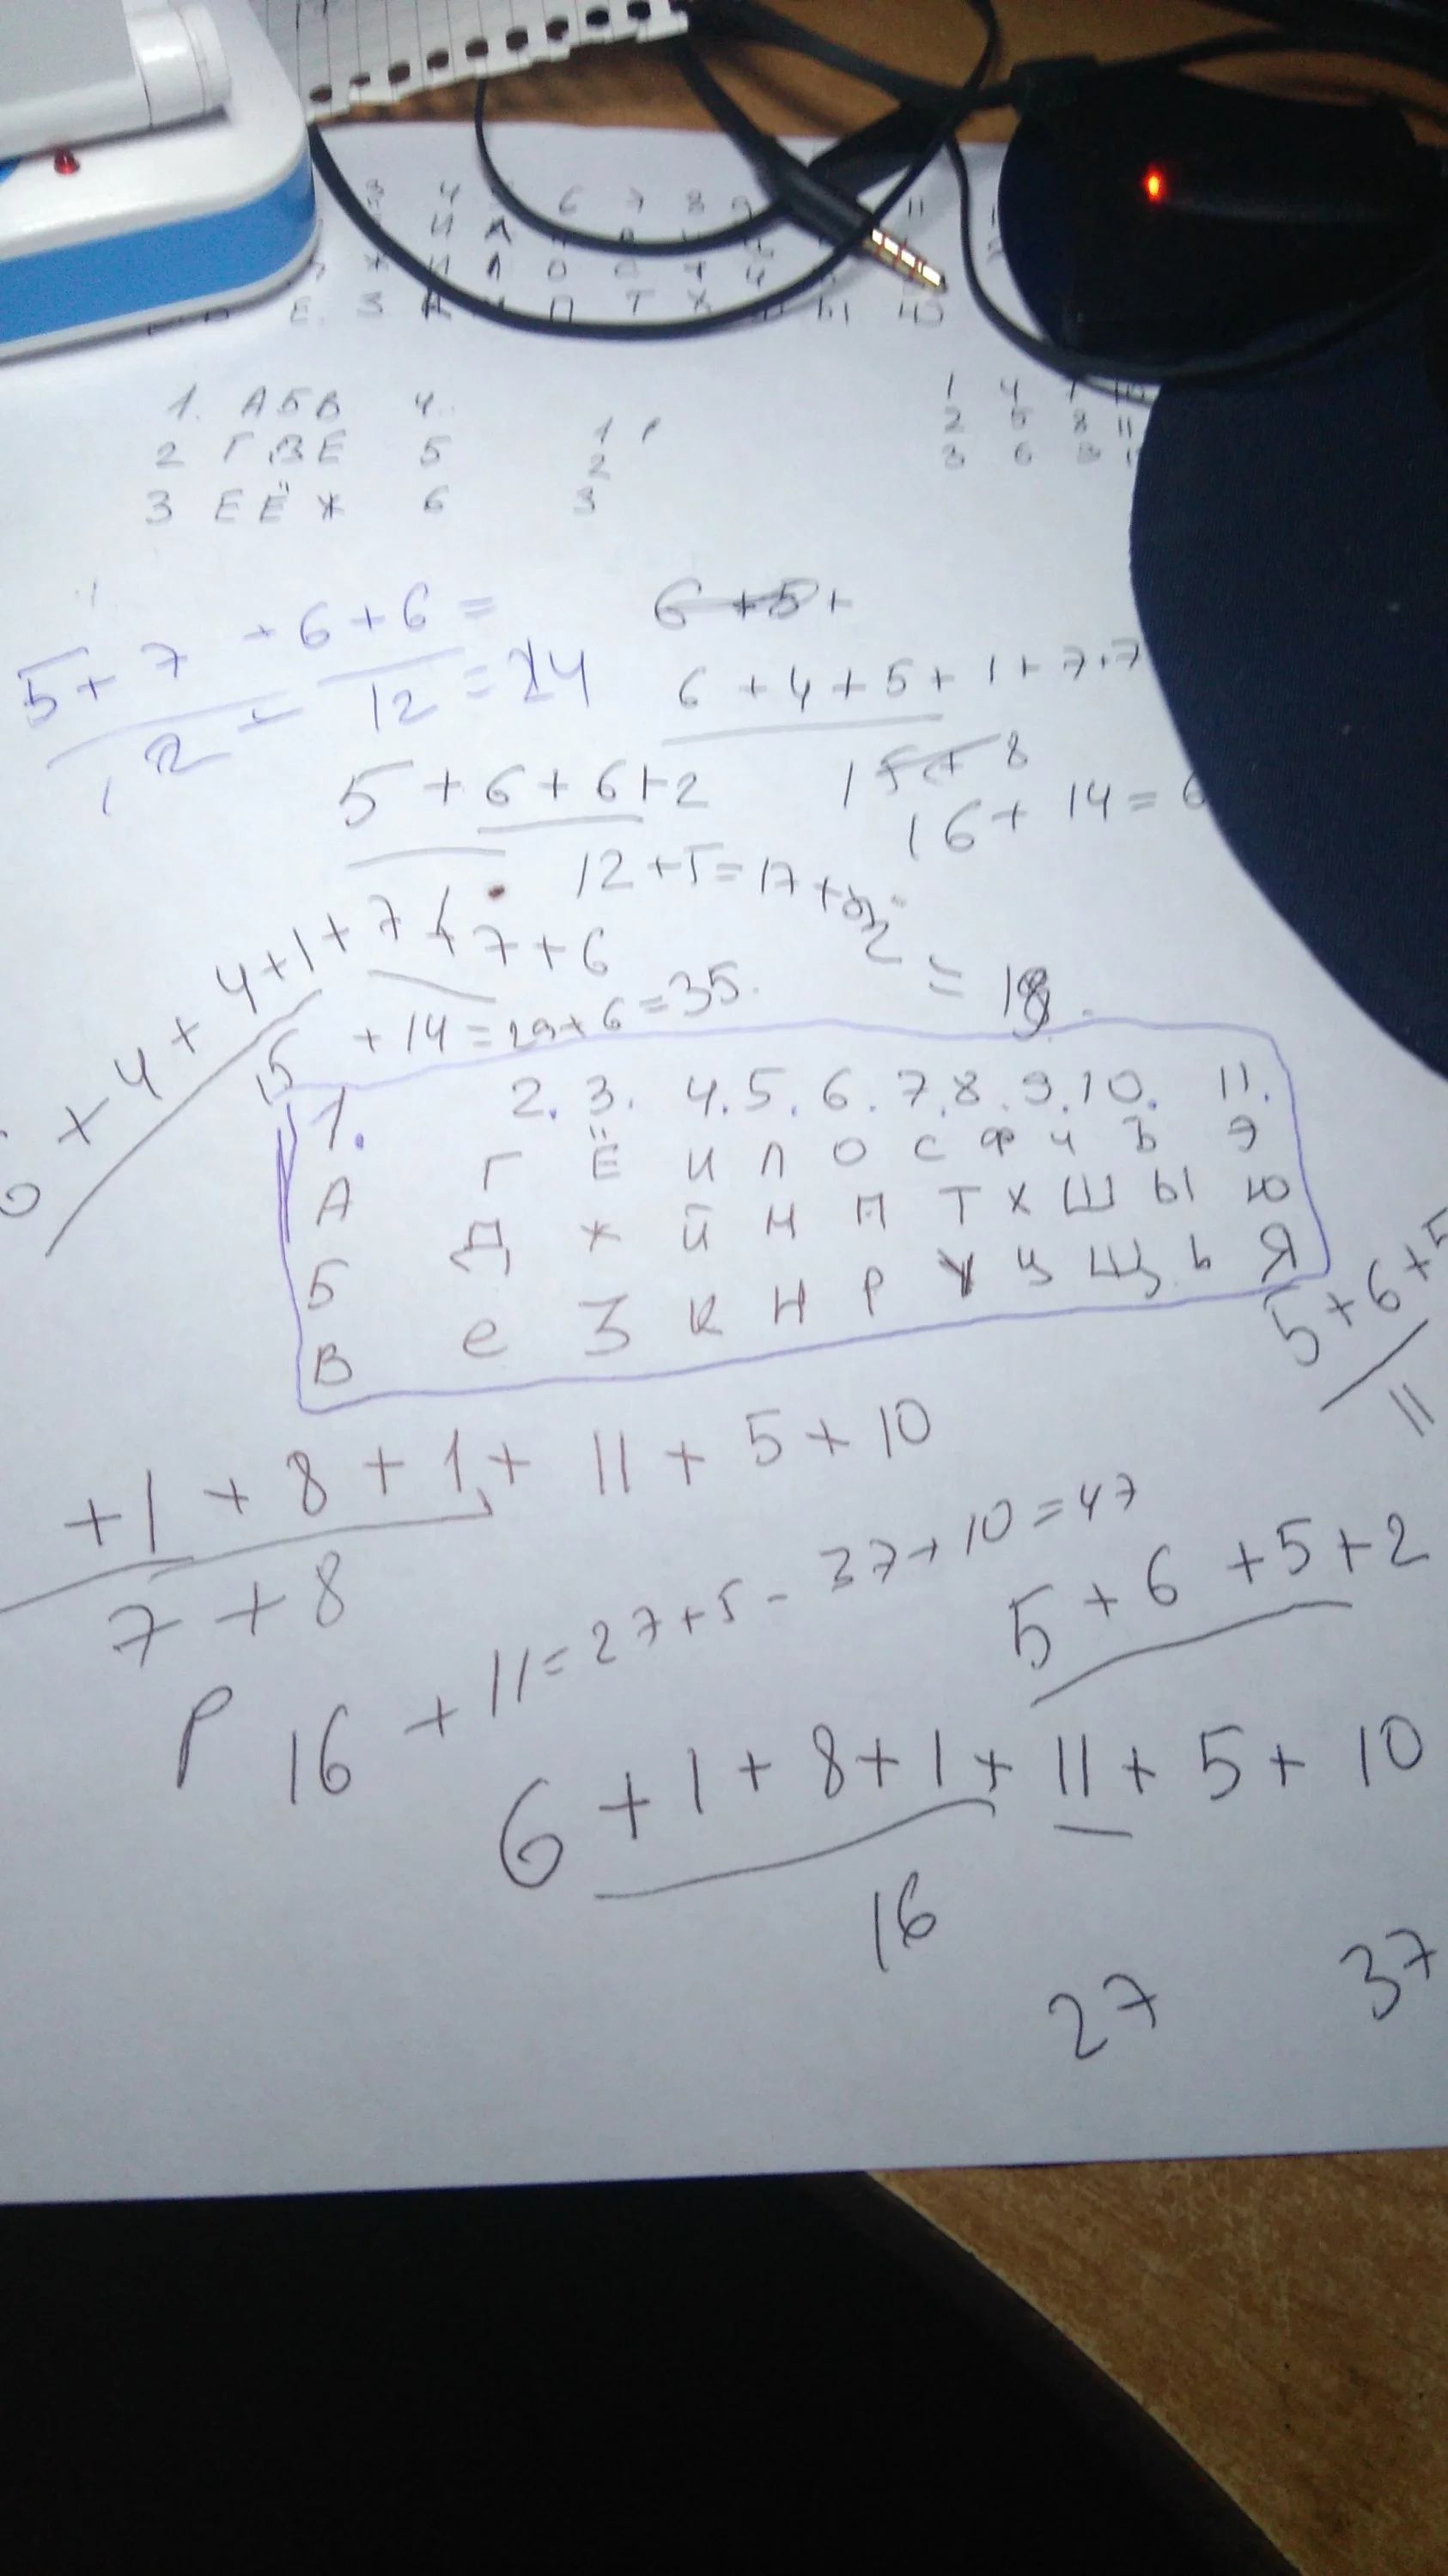 3 4 6 7 8 9 11
Е З П Т Х Ы Ю
1. А Б В 4.
2 Г В Е 5
3 Е Ё Ж 6
1
2
3
1 4
2 5 8 11
3 6 9
5 + 7 + 6 + 6 =
12 + 12 = 24
6 + 5 +
6 + 4 + 5 + 1 + 7 + 7
15 + 8
16 + 14 = 6
5 + 6 + 6 + 2
12 + 5 = 17 +
= 18.
+ 4 + 4 + 1 + 7 + 7 + 6
15 + 14 = 29 + 6 = 35.
1. 2. 3. 4. 5. 6. 7. 8. 9. 10. 11.
А Г Ё И Л О С Ф Ч Ъ Э
Б Д Ж Й М П Т Х Ш Ы Ю
В е З К Н Р У Ц Щ Ь Я
5 + 6 + 5
11
+ 1 + 8 + 1 + 11 + 5 + 10
7 + 8
Р 16 + 11 = 27 + 5 - 37 + 10 = 47
5 + 6 + 5 + 2
6 + 1 + 8 + 1 + 11 + 5 + 10
16
27 37